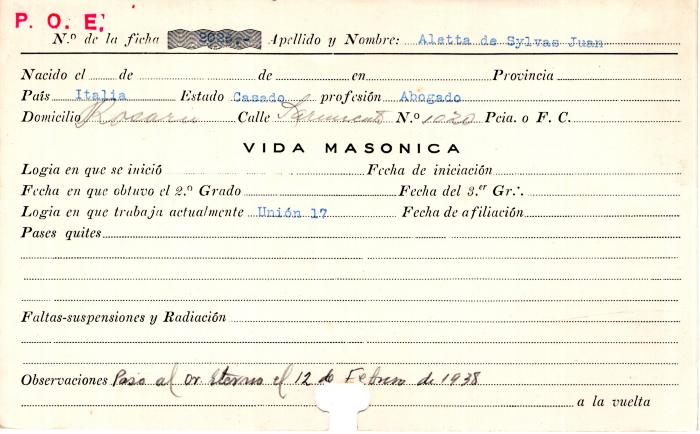 P. O. E.
N.º de la ficha Apellido y Nombre: Aletta de Sylvas Juan
Nacido el de de en Provincia
País Italia Estado Casado profesión Abogado
Domicilio Rosario Calle Sarmiento N.º 1020 Pcia. o F. C.
VIDA MASONICA
Logia en que se inició Fecha de iniciación
Fecha en que obtuvo el 2.º Grado Fecha del 3.er Gr∴
Logia en que trabaja actualmente Unión 17 Fecha de afiliación
Pases quites
Faltas-suspensiones y Radiación
Observaciones Paso al Or. Eterno el 12 de Febrero de 1938
a la vuelta